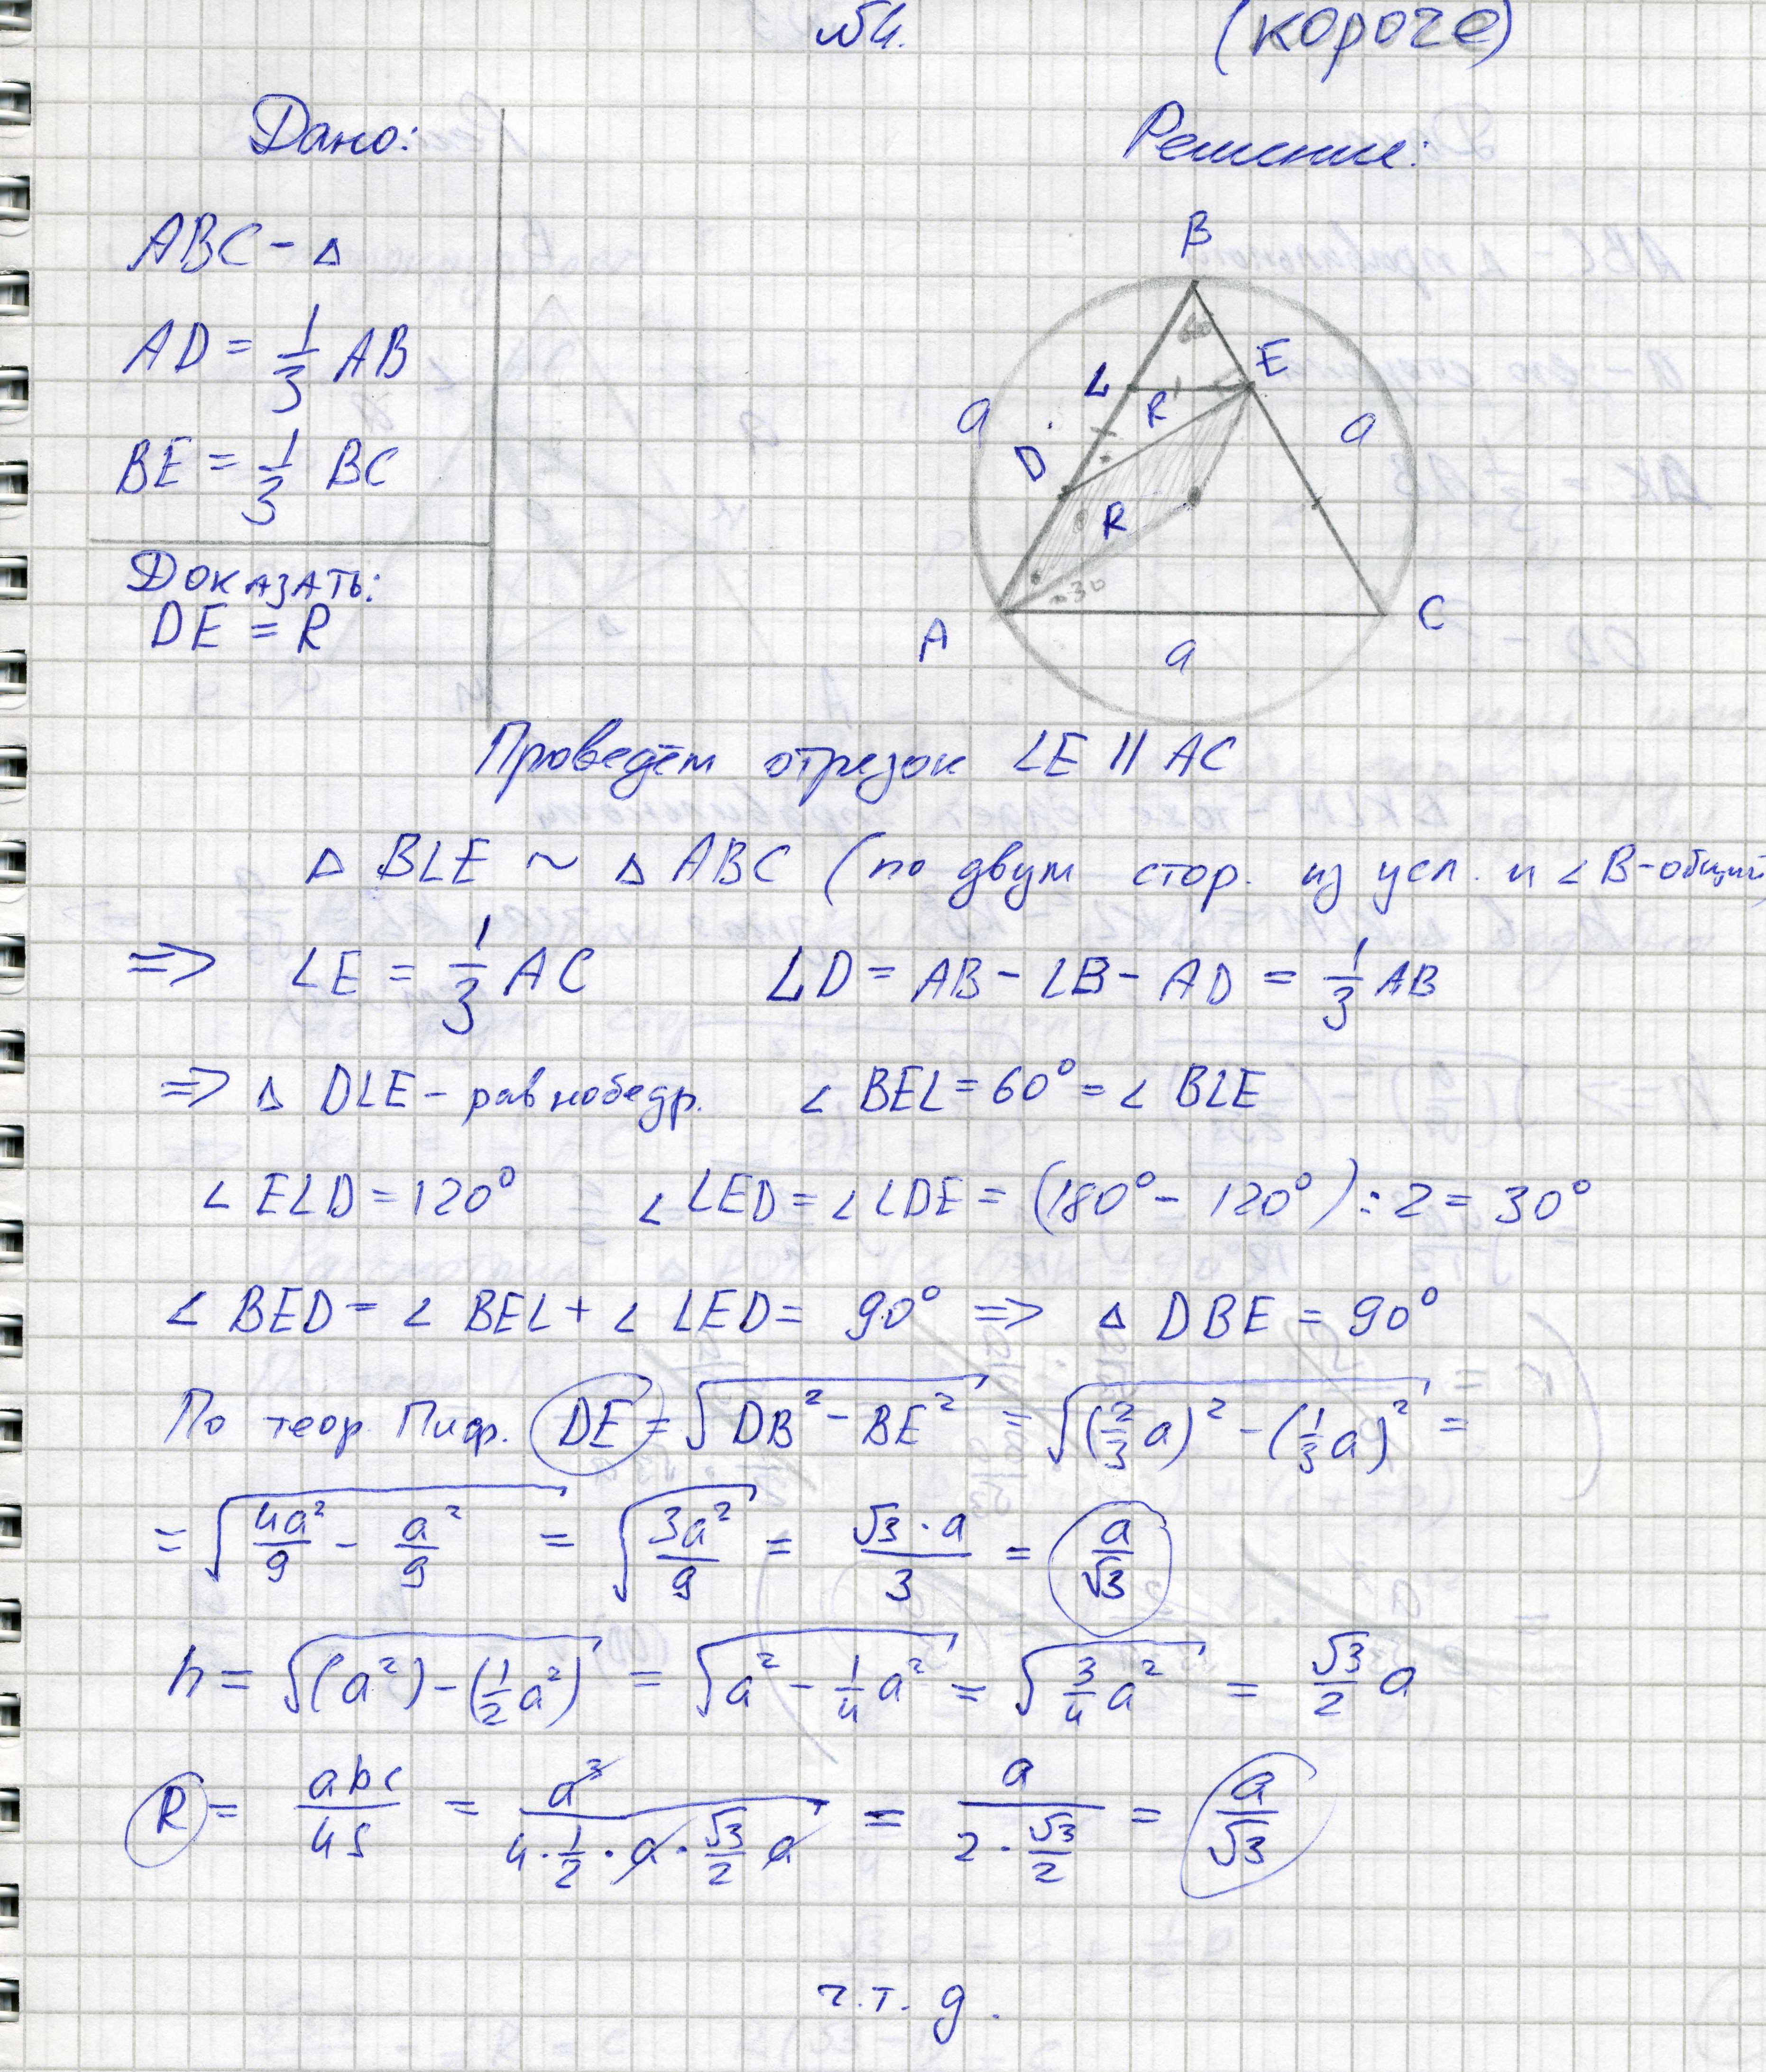 №4. (короче)
Дано:
ABC - △
AD = 1/3 AB
BE = 1/3 BC
Доказать:
DE = R
Решение:
B
L E
a R a
D
R
60
30
A C
a
Проведём отрезок LE || AC
△ BLE ~ △ ABC (по двум стор. из усл. и ∠B-общий
=> LE = 1/3 AC LD = AB - LB - AD = 1/3 AB
=> △ DLE - равнобедр. ∠ BEL = 60° = ∠ BLE
∠ ELD = 120° ∠ LED = ∠ LDE = (180° - 120°) : 2 = 30°
∠ BED = ∠ BEL + ∠ LED = 90° => △ DBE = 90°
По теор. Пиф. DE = √(DB² - BE²) = √((2/3 a)² - (1/3 a)²) =
= √(4a²/9 - a²/9) = √(3a²/9) = √3 · a / 3 = a/√3
h = √((a²) - (1/2 a²)) = √(a² - 1/4 a²) = √(3/4 a²) = √3/2 a
R = abc/4S = a³/(4 · 1/2 · a · √3/2 a) = a/(2 · √3/2) = a/√3
ч.т.д.